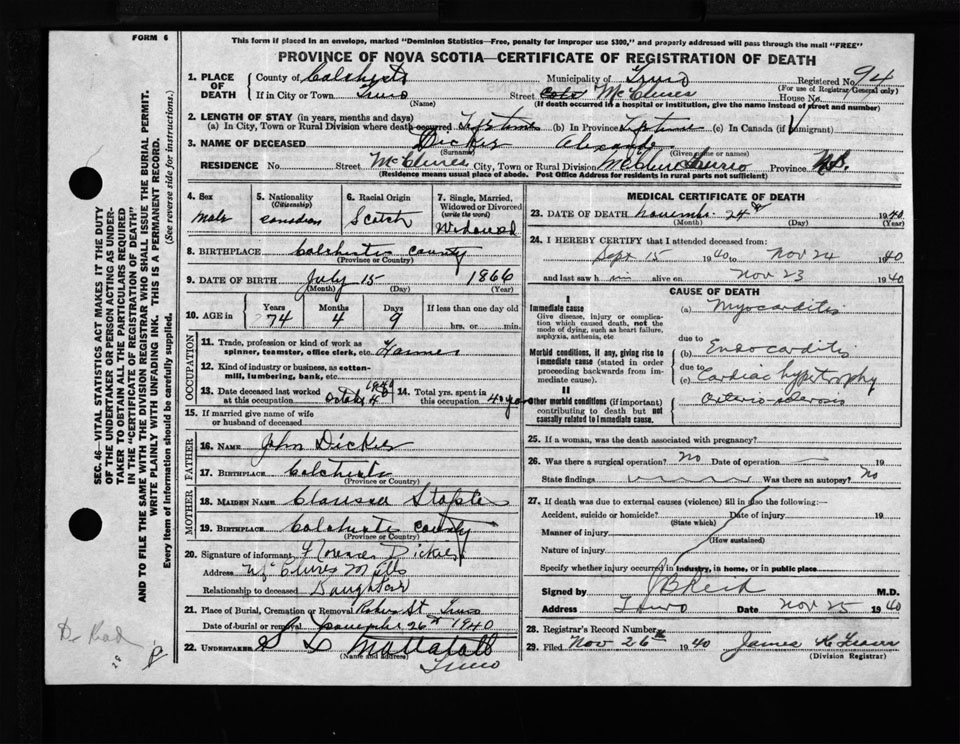 FORM 6
This form if placed in an envelope, marked "Dominion Statistics—Free, penalty for improper use $300," and properly addressed will pass through the mail "FREE"
PROVINCE OF NOVA SCOTIA—CERTIFICATE OF REGISTRATION OF DEATH
1. PLACE OF DEATH
County of Colchester Municipality of Truro Registered No. 94
(For use of Registrar General only)
If in City or Town Truro Street McClures House No.
(Name) (If death occurred in a hospital or institution, give the name instead of street and number)
2. LENGTH OF STAY (in years, months and days)
(a) In City, Town or Rural Division where death occurred Life time (b) In Province Life time (c) In Canada (if immigrant)
3. NAME OF DECEASED Dickie Alexander
(Surname) (Given name or names)
RESIDENCE No. Street McClures City, Town or Rural Division Truro Province N.S.
(Residence means usual place of abode. Post Office Address for residents in rural parts not sufficient)
4. Sex Male
5. Nationality (Citizenship) Canadian
6. Racial Origin Scotch
7. Single, Married, Widowed or Divorced (write the word) Widowed
8. BIRTHPLACE Colchester County
(Province or Country)
9. DATE OF BIRTH July 15 1866
(Month) (Day) (Year)
10. AGE in Years 74 Months 4 Days 9 If less than one day old hrs. or min.
OCCUPATION
11. Trade, profession or kind of work as spinner, teamster, office clerk, etc. Farmer
12. Kind of industry or business, as cotton-mill, lumbering, bank, etc.
13. Date deceased last worked at this occupation October 1940
14. Total yrs. spent in this occupation
15. If married give name of wife or husband of deceased
FATHER
16. NAME John Dickie
17. BIRTHPLACE Colchester
(Province or Country)
MOTHER
18. MAIDEN NAME Clarissa
19. BIRTHPLACE Colchester County
(Province or Country)
20. Signature of informant Dickie
Address McClures Mills
Relationship to deceased Daughter
21. Place of Burial, Cremation or Removal Robie St. Truro
Date of burial or removal November 26th 1940
22. UNDERTAKER Mattatall
(Name and address)
Truro
MEDICAL CERTIFICATE OF DEATH
23. DATE OF DEATH November 24th 1940
(Month) (Day) (Year)
24. I HEREBY CERTIFY that I attended deceased from:
Sept 15 1940 to Nov 24 1940
and last saw him alive on Nov 23 1940
CAUSE OF DEATH
I
Immediate cause
Give disease, injury or complication which caused death, not the mode of dying, such as heart failure, asphyxia, asthenia, etc.
(a) Myocarditis
due to
Morbid conditions, if any, giving rise to immediate cause (stated in order proceeding backwards from immediate cause).
(b) Endocarditis
due to
(c) Cardiac hypertrophy
II
Other morbid conditions (if important) contributing to death but not causally related to immediate cause.
Arterio-sclerosis
25. If a woman, was the death associated with pregnancy?
26. Was there a surgical operation? No Date of operation 19
State findings Was there an autopsy? No
27. If death was due to external causes (violence) fill in also the following:—
Accident, suicide or homicide? Date of injury 19
(State which)
Manner of injury
(How sustained)
Nature of injury
Specify whether injury occurred in industry, in home, or in public place
Signed by M.D.
Address Truro Date Nov 25 1940
28. Registrar's Record Number
29. Filed Nov 26th 1940 James
(Division Registrar)
SEC. 46—VITAL STATISTICS ACT MAKES IT THE DUTY
OF THE UNDERTAKER OR PERSON ACTING AS UNDER-
TAKER TO OBTAIN ALL THE PARTICULARS REQUIRED
IN THE "CERTIFICATE OF REGISTRATION OF DEATH"
AND TO FILE THE SAME WITH THE DIVISION REGISTRAR WHO SHALL ISSUE THE BURIAL PERMIT.
WRITE PLAINLY WITH UNFADING INK. THIS IS A PERMANENT RECORD.
Every item of information should be carefully supplied. (See reverse side for instructions.)